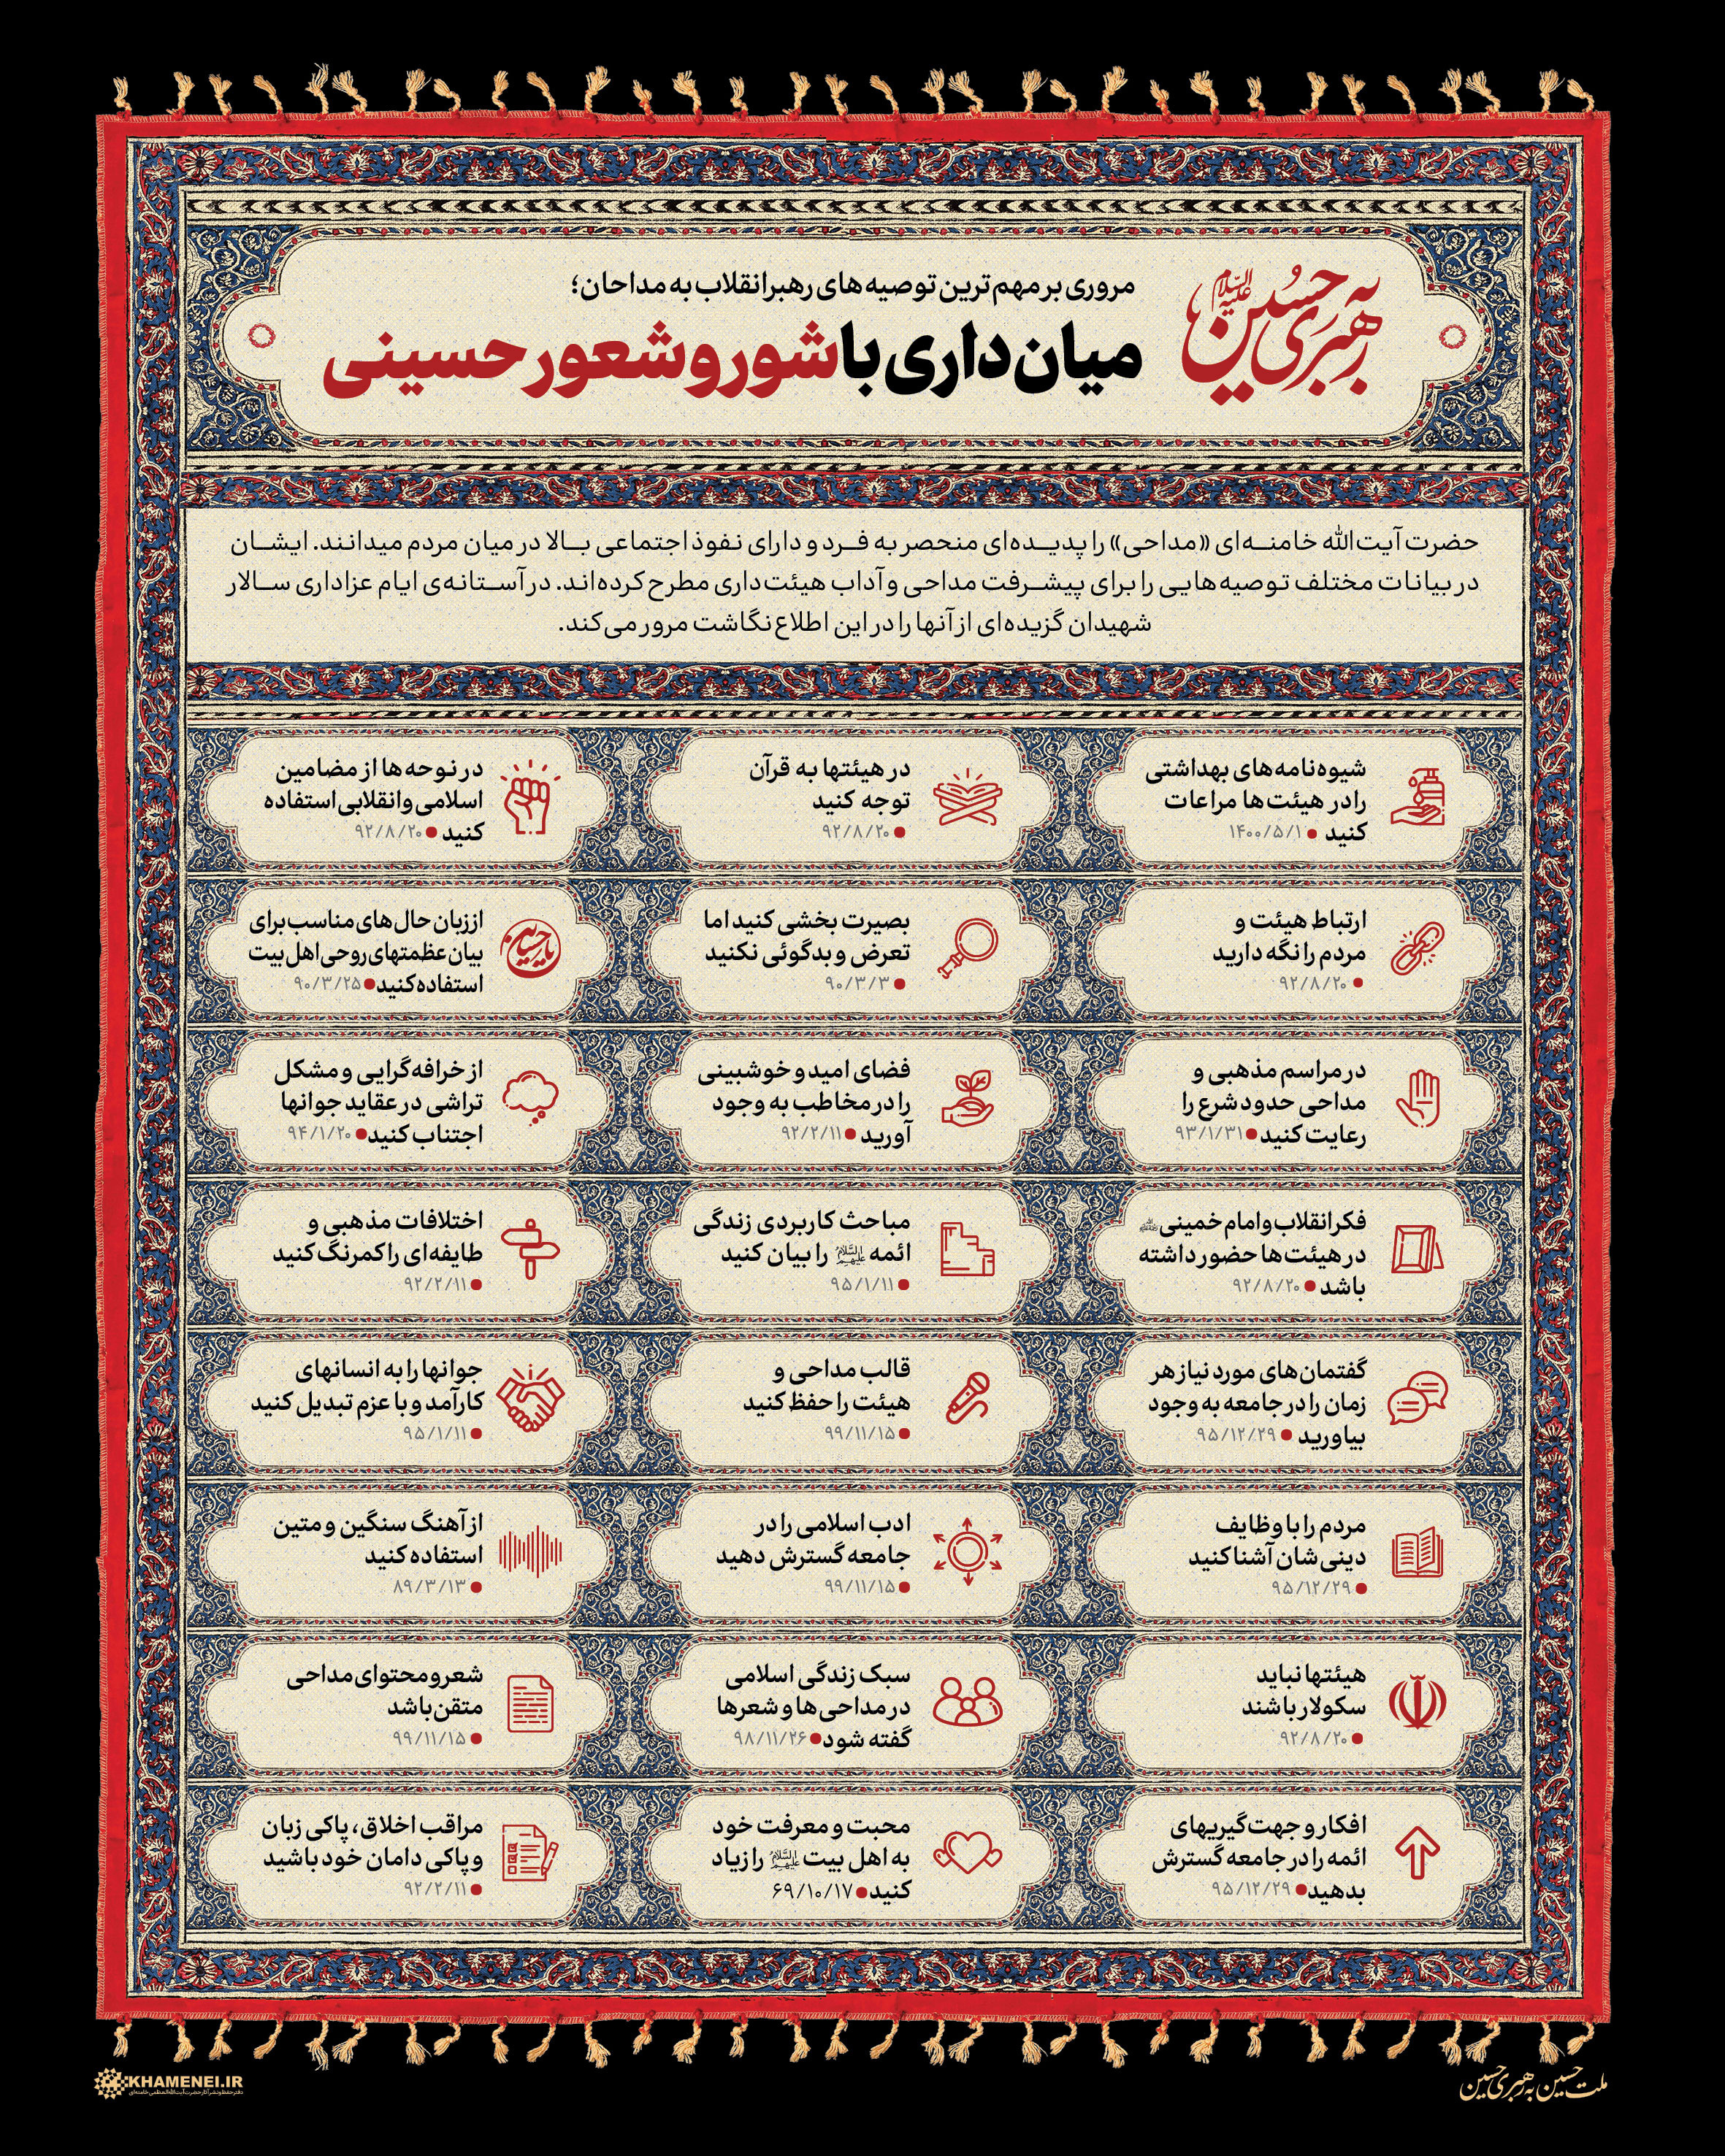 به رهبری حسین علیه السلام
مروری بر مهم‌ترین توصیه‌های رهبر انقلاب به مداحان؛
میان‌داری با شور و شعور حسینی
حضرت آیت‌الله خامنه‌ای «مداحی» را پدیده‌ای منحصر به فرد و دارای نفوذ اجتماعی بالا در میان مردم میدانند. ایشان
در بیانات مختلف توصیه‌هایی را برای پیشرفت مداحی و آداب هیئت‌داری مطرح کرده‌اند. در آستانه‌ی ایام عزاداری سالار
شهیدان گزیده‌ای از آنها را در این اطلاع‌نگاشت مرور می‌کند.
شیوه‌نامه‌های بهداشتی
را در هیئت‌ها مراعات
کنید ● ۱۴۰۰/۵/۱
در هیئتها به قرآن
توجه کنید
● ۹۲/۸/۲۰
در نوحه‌ها از مضامین
اسلامی و انقلابی استفاده
کنید ● ۹۲/۸/۲۰
ارتباط هیئت و
مردم را نگه دارید
● ۹۲/۸/۲۰
بصیرت بخشی کنید اما
تعرض و بدگوئی نکنید
● ۹۰/۳/۳
یا حسین
از زبان حال‌های مناسب برای
بیان عظمتهای روحی اهل بیت
استفاده کنید ● ۹۰/۳/۲۵
در مراسم مذهبی و
مداحی حدود شرع را
رعایت کنید ● ۹۳/۱/۳۱
فضای امید و خوشبینی
را در مخاطب به وجود
آورید ● ۹۲/۲/۱۱
از خرافه‌گرایی و مشکل
تراشی در عقاید جوانها
اجتناب کنید ● ۹۴/۱/۲۰
فکر انقلاب و امام خمینی
در هیئت‌ها حضور داشته
باشد ● ۹۲/۸/۲۰
مباحث کاربردی زندگی
ائمه علیهم السلام را بیان کنید
● ۹۵/۱/۱۱
اختلافات مذهبی و
طایفه‌ای را کمرنگ کنید
● ۹۲/۲/۱۱
گفتمان‌های مورد نیاز هر
زمان را در جامعه به وجود
بیاورید ● ۹۵/۱۲/۲۹
قالب مداحی و
هیئت را حفظ کنید
● ۹۹/۱۱/۱۵
جوانها را به انسانهای
کارآمد و با عزم تبدیل کنید
● ۹۵/۱/۱۱
مردم را با وظایف
دینی‌شان آشنا کنید
● ۹۵/۱۲/۲۹
ادب اسلامی را در
جامعه گسترش دهید
● ۹۹/۱۱/۱۵
از آهنگ سنگین و متین
استفاده کنید
● ۸۹/۳/۱۳
هیئتها نباید
سکولار باشند
● ۹۲/۸/۲۰
سبک زندگی اسلامی
در مداحی‌ها و شعرها
گفته شود ● ۹۸/۱۱/۲۶
شعر و محتوای مداحی
متقن باشد
● ۹۹/۱۱/۱۵
افکار و جهت‌گیریهای
ائمه را در جامعه گسترش
بدهید ● ۹۵/۱۲/۲۹
محبت و معرفت خود
به اهل بیت علیهم السلام را زیاد
کنید ● ۶۹/۱۰/۱۷
مراقب اخلاق، پاکی زبان
و پاکی دامان خود باشید
● ۹۲/۲/۱۱
ملت حسین به رهبری حسین
KHAMENEI.IR
دفتر حفظ و نشر آثار حضرت آیت‌الله العظمی خامنه‌ای